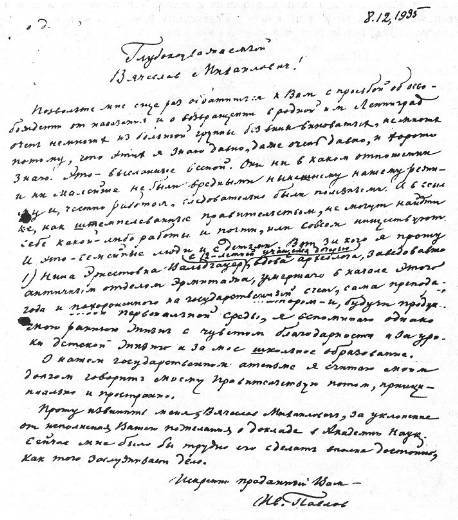 8.12.1935
Глубокоуважаемый
Вячеслав Михайлович!
Позвольте мне еще раз обратиться к Вам с просьбой об осво-
бождении от наказания и о возвращении в родной им Ленинград
очень немногих из большой группы без вины виноватых, немногих
потому, что этих я знаю давно, даже очень давно, и хорошо
знаю. Это - высланные весной. Они ни в каком отношении
и ни малейше не были вредными нынешнему нашему режи-
му и, честно работая, следовательно были полезными. А в ссыл
ке, как штемпелеванные правительством, не могут найти
себе какой-либо работы и почти, или совсем нищенствуют
И это - семейные люди и с детьми. Вот за кого я прошу
с 12-летней учащейся дочерью
1) Нина Эрнестовна Вальдгауэр, вдова археолога, заведовавшего
античным отделом Эрмитажа, умершего в начале этого
года и похороненного на государственный счет, сама препода-
первоначальной среде, я вспоминаю однако
мою раннюю жизнь с чувством благодарности и за уро-
ки детской жизни и за мое школьное образование.
О нашем государственном атеизме я считаю моим
долгом говорить моему Правительству потом, принци-
пиально и пространно.
Прошу извинить меня, Вячеслав Михайлович, за уклонение
от исполнения Вашего пожелания о докладе в Академии Наук.
Сейчас мне было бы трудно его сделать вполне достойно,
как того заслуживает дело.
Искренне преданный Вам -
Ив. Павлов